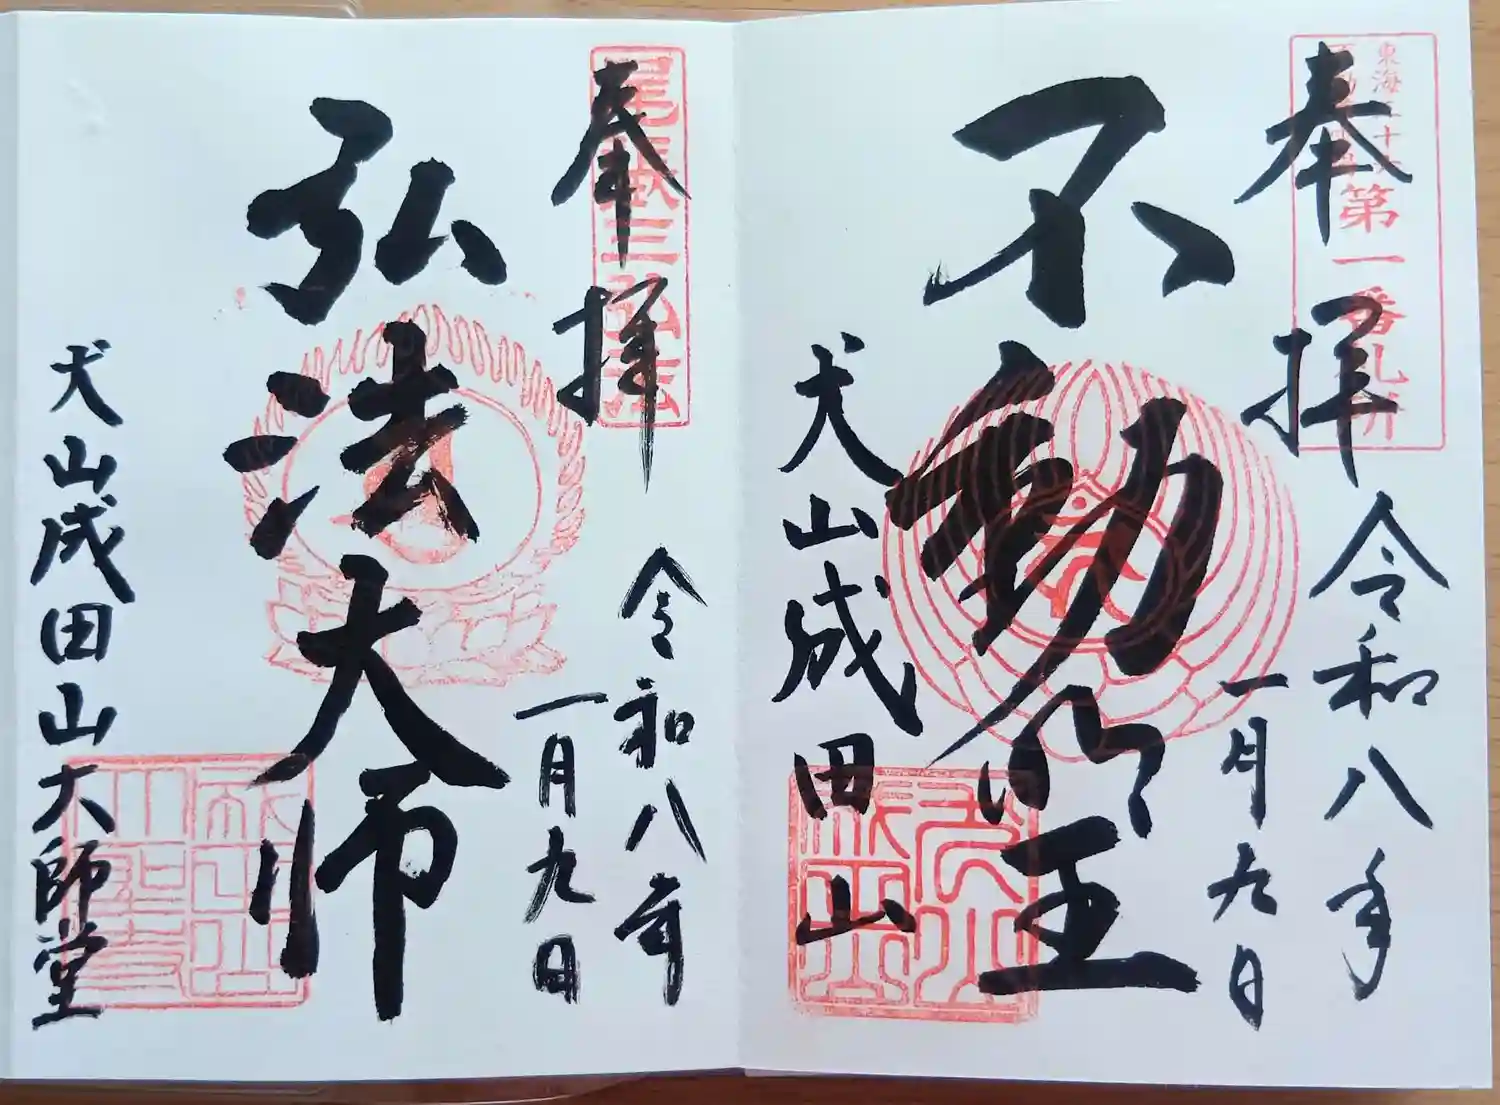 奉拝
令和八年
一月九日
東海三十六
第一番札所
不動明王
犬山成田山
奉拝
尾張三弘法
令和八年
一月九日
弘法大师
犬山成田山大師堂